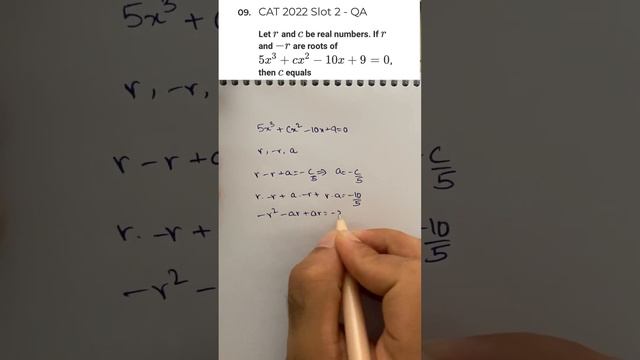 09. CAT 2022 Slot 2 - QA
Let r and c be real numbers. If r
and −r are roots of
5x³ + cx² − 10x + 9 = 0,
then c equals
5x³ + cx² − 10x + 9 = 0
r, −r, a
r − r + a = −c/5 ⇒ a = −c/5
r. −r + a. −r + r.a = −10/5
−r² − ar + ar = −2
5x³ + c
r, −r,
r − r + a
r. −r +
−r² −
c/5
−10/5